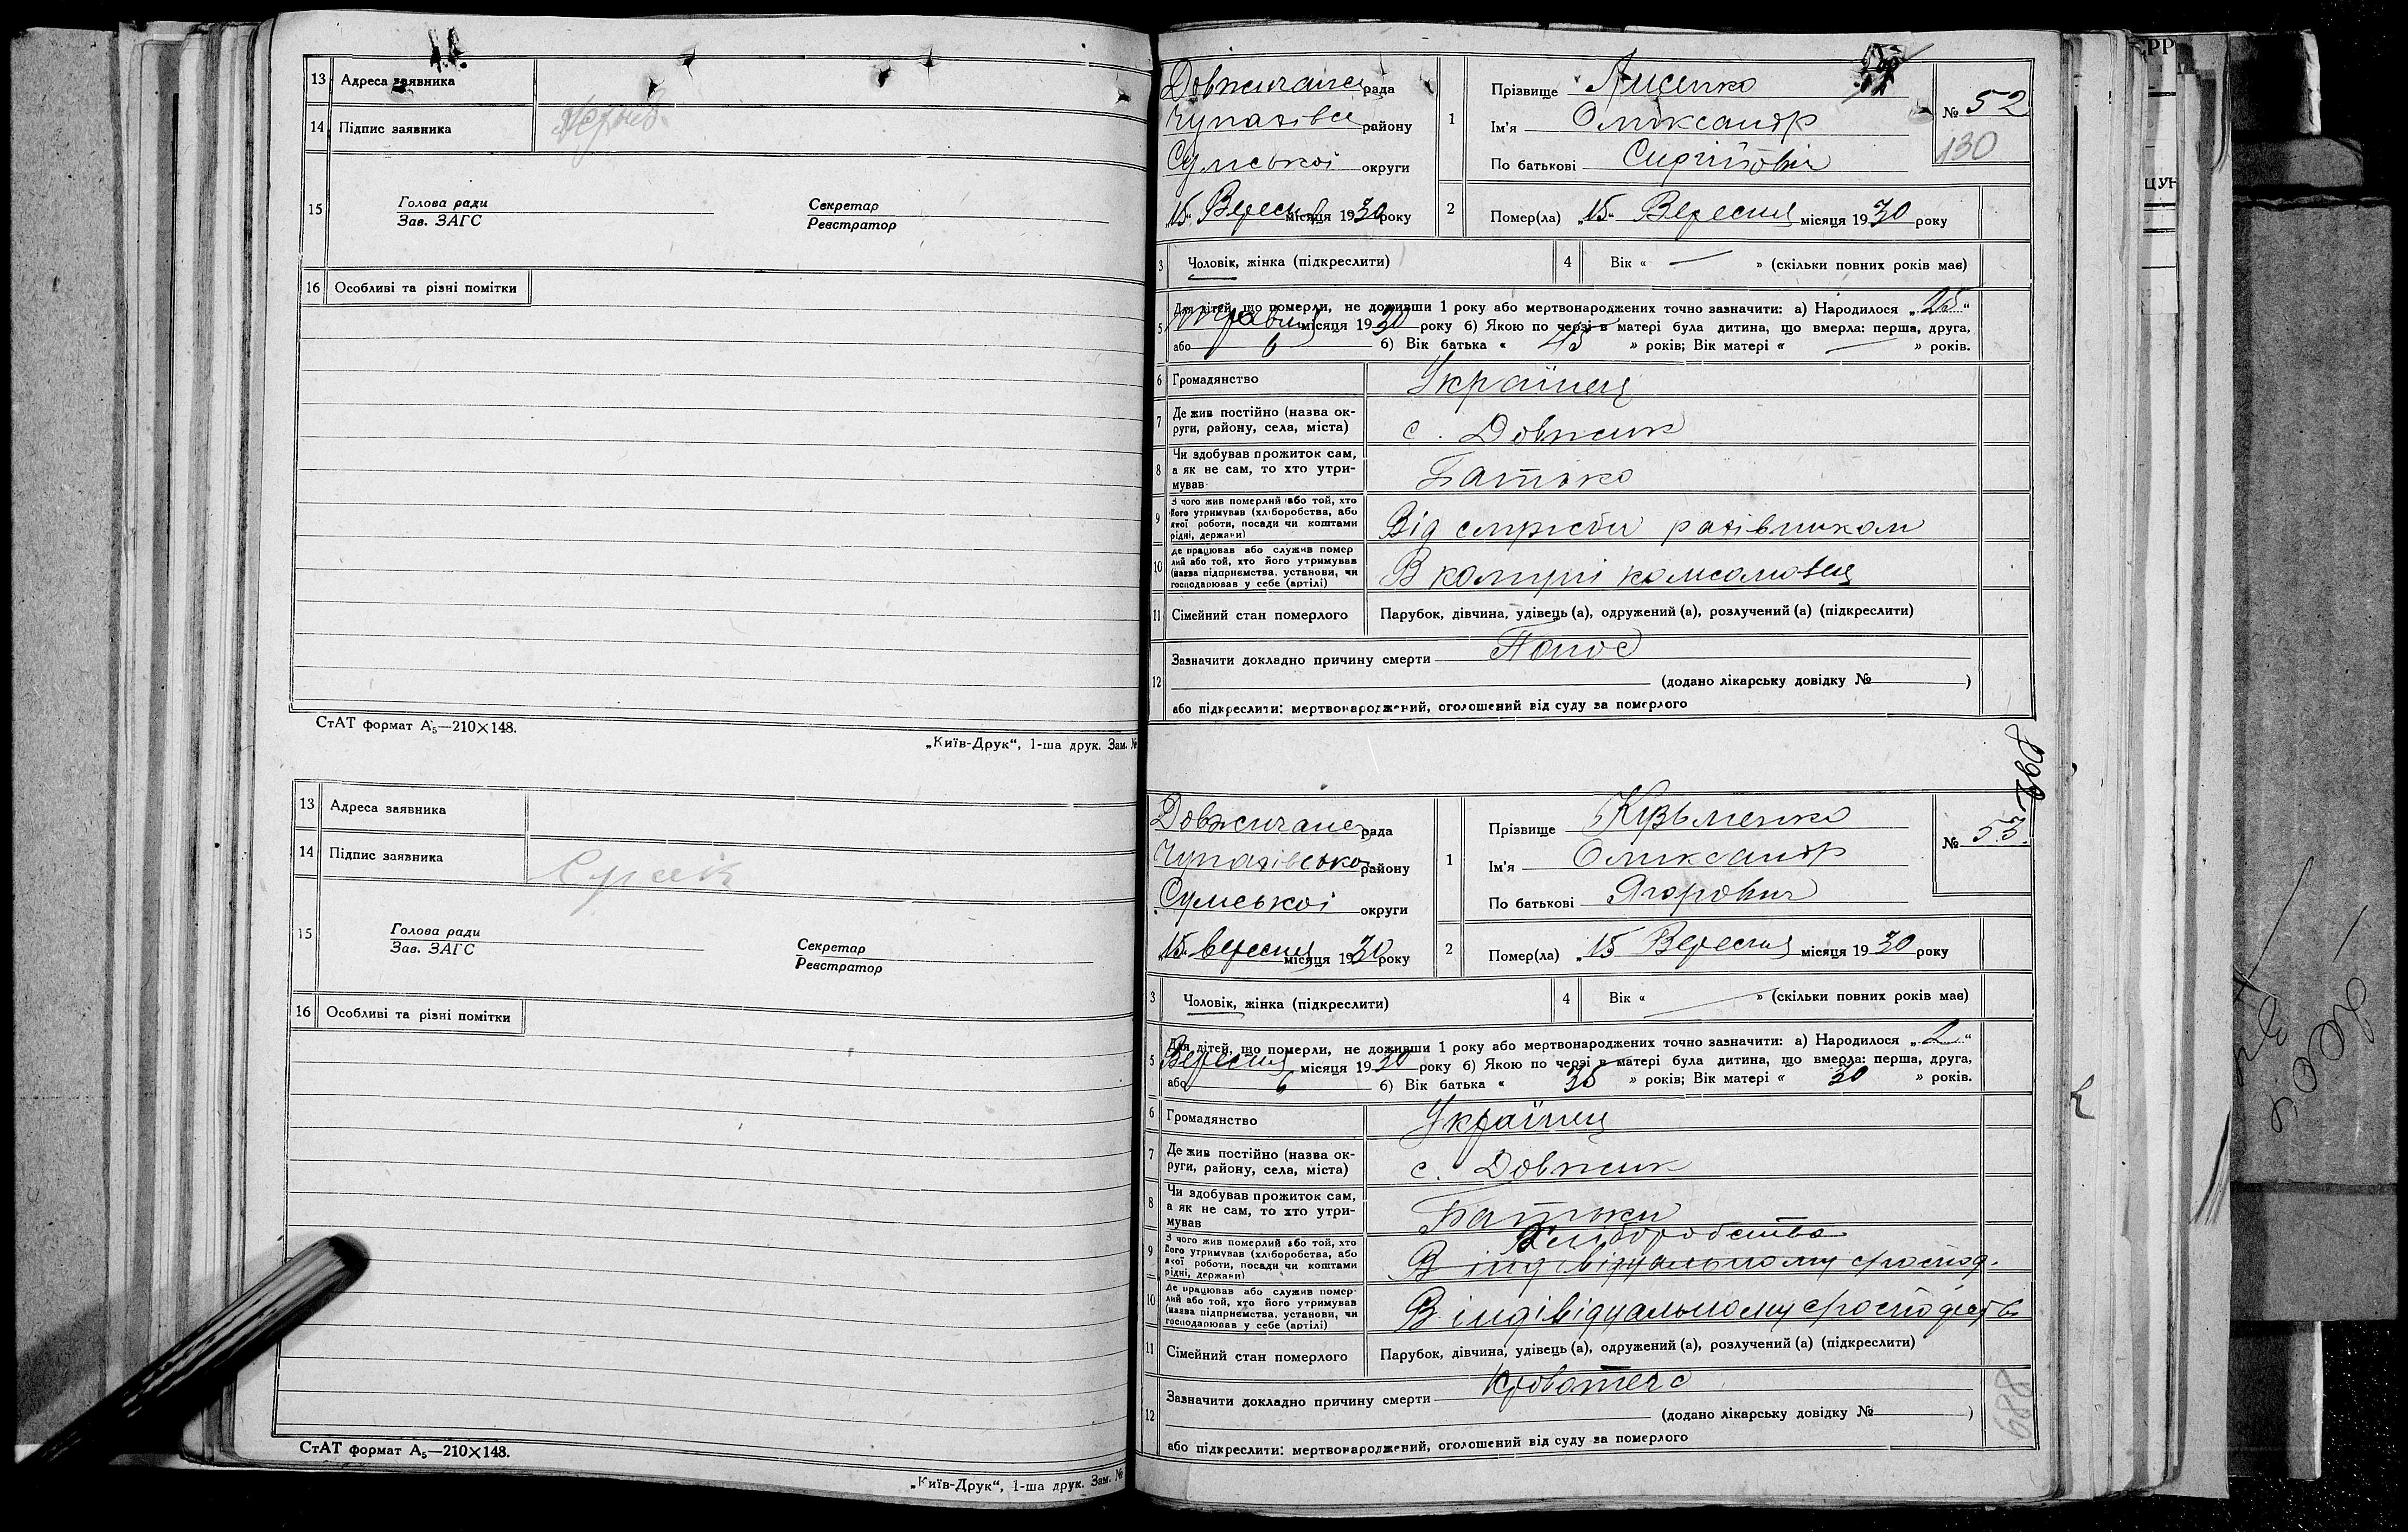 13 Адреса заявника
14 Підпис заявника
15 Голова ради Секретар
Зав. ЗАГС Реєстратор
16 Особливі та різні помітки
СтАТ формат А5—210×148.
„Київ-Друк“, 1-ша друк. Зам. №
13 Адреса заявника
14 Підпис заявника
15 Голова ради Секретар
Зав. ЗАГС Реєстратор
16 Особливі та різні помітки
СтАТ формат А5—210×148.
„Київ-Друк“, 1-ша друк. Зам. №
рада
району
Сумської округи
„15“ Вересня місяця 1930 року
1 Прізвище Лиценко
Ім'я Олександр
По батькові
№ 52
130
2 Помер(ла) „15“ Вересня місяця 1930 року
3 Чоловік, жінка (підкреслити)
4 Вік « — » (скільки повних років має)
5 Для дітей, що померли, не доживши 1 року або мертвонароджених точно зазначити: а) Народилося „25“
Травня місяця 1930 року б) Якою по черзі в матері була дитина, що вмерла: перша, друга,
або 6 б) Вік батька « 45 » років; Вік матері « — » років.
6 Громадянство Українец
7 Де жив постійно (назва округи, району, села, міста) с. Довжик
8 Чи здобував прожиток сам, а як не сам, то хто утримував Батько
9 З чого жив померлий або той, хто його утримував (хліборобства, або якої роботи, посади чи коштами рідні, держави) Від служби
10 Де працював або служив померлий або той, хто його утримував (назва підприємства, установи, чи господарював у себе (артілі) В комуні
11 Сімейний стан померлого Парубок, дівчина, удівець (а), одружений (а), розлучений (а) (підкреслити)
12 Зазначити докладно причину смерти Понос
(додано лікарську довідку № )
або підкреслити: мертвонароджений, оголошений від суду за померлого
рада
Чупахівсько району
Сумської округи
„15“ вересня місяця 1930 року
1 Прізвище Кузьменко
Ім'я Олександр
По батькові Ягорович
№ 53
2 Помер(ла) „15 Вересня місяця 1930 року
3 Чоловік, жінка (підкреслити)
4 Вік « — » (скільки повних років має)
5 Для дітей, що померли, не доживши 1 року або мертвонароджених точно зазначити: а) Народилося „2“
Вересня місяця 1930 року б) Якою по черзі в матері була дитина, що вмерла: перша, друга,
або 6 б) Вік батька « 35 » років; Вік матері « 30 » років.
6 Громадянство Українец
7 Де жив постійно (назва округи, району, села, міста) с. Довжик
8 Чи здобував прожиток сам, а як не сам, то хто утримував Батьки
9 З чого жив померлий або той, хто його утримував (хліборобства, або якої роботи, посади чи коштами рідні, держави) Хліборобства
В індівідуальному господ.
10 Де працював або служив померлий або той, хто його утримував (назва підприємства, установи, чи господарював у себе (артілі) В індівідуальному
11 Сімейний стан померлого Парубок, дівчина, удівець (а), одружений (а), розлучений (а) (підкреслити)
12 Зазначити докладно причину смерти Кровотеча
(додано лікарську довідку № )
або підкреслити: мертвонароджений, оголошений від суду за померлого
688